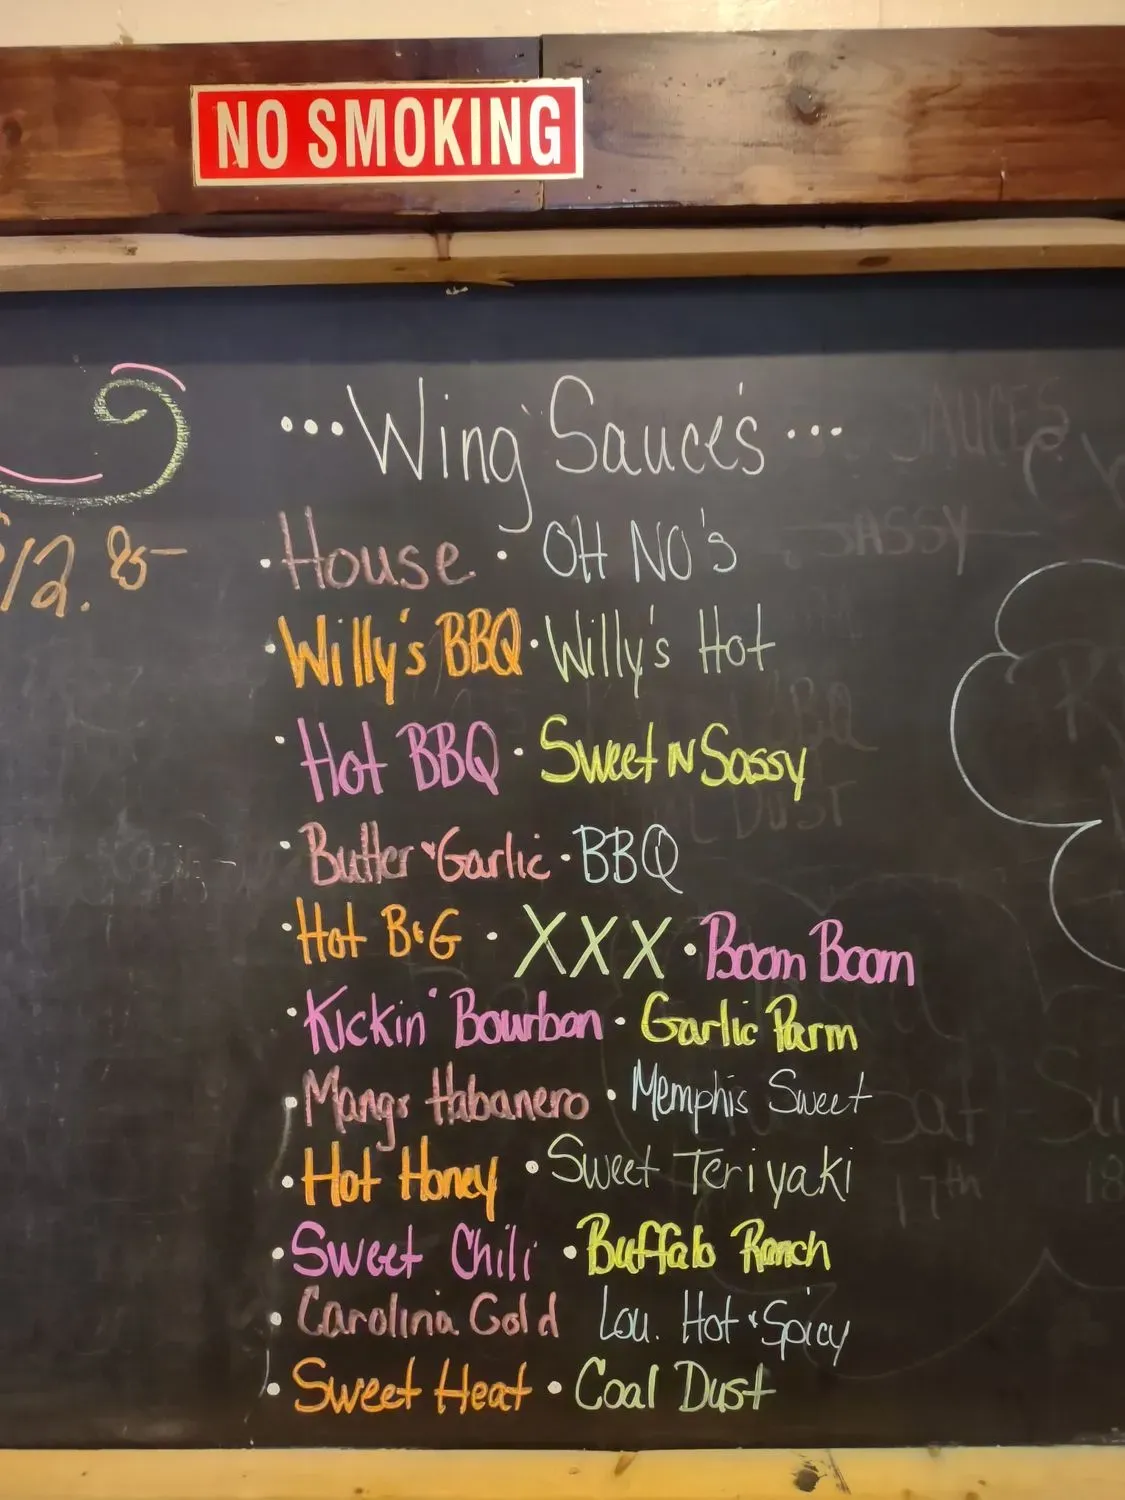 NO SMOKING
...Wing Sauce's...
$12.85
• House • OH NO's
• Willy's BBQ • Willy's Hot
• Hot BBQ • Sweet N Sassy
• Butter & Garlic • BBQ
• Hot B&G • XXX • Boom Boom
• Kickin' Bourbon • Garlic Parm
• Mango Habanero • Memphis Sweet
• Hot Honey • Sweet Teriyaki
• Sweet Chili • Buffalo Ranch
• Carolina Gold Lou. Hot & Spicy
• Sweet Heat • Coal Dust
SAUCES
SASSY
DUST
Sat
17th
18